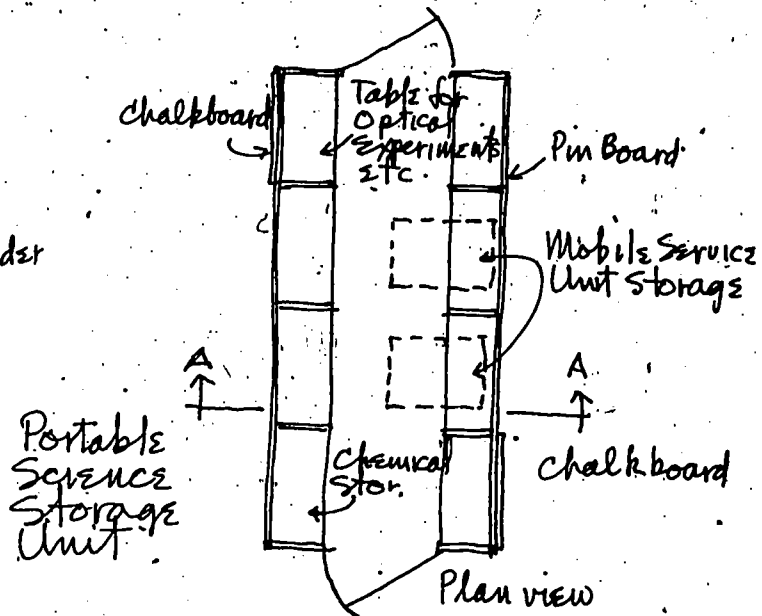 Chalkboard
Table for
Optical
Experiments
Etc.
Pin Board
der
Mobile Service
Unit Storage
A
A
Portable
Science
Storage
Unit
Chemical
Stor.
Chalkboard
Plan view